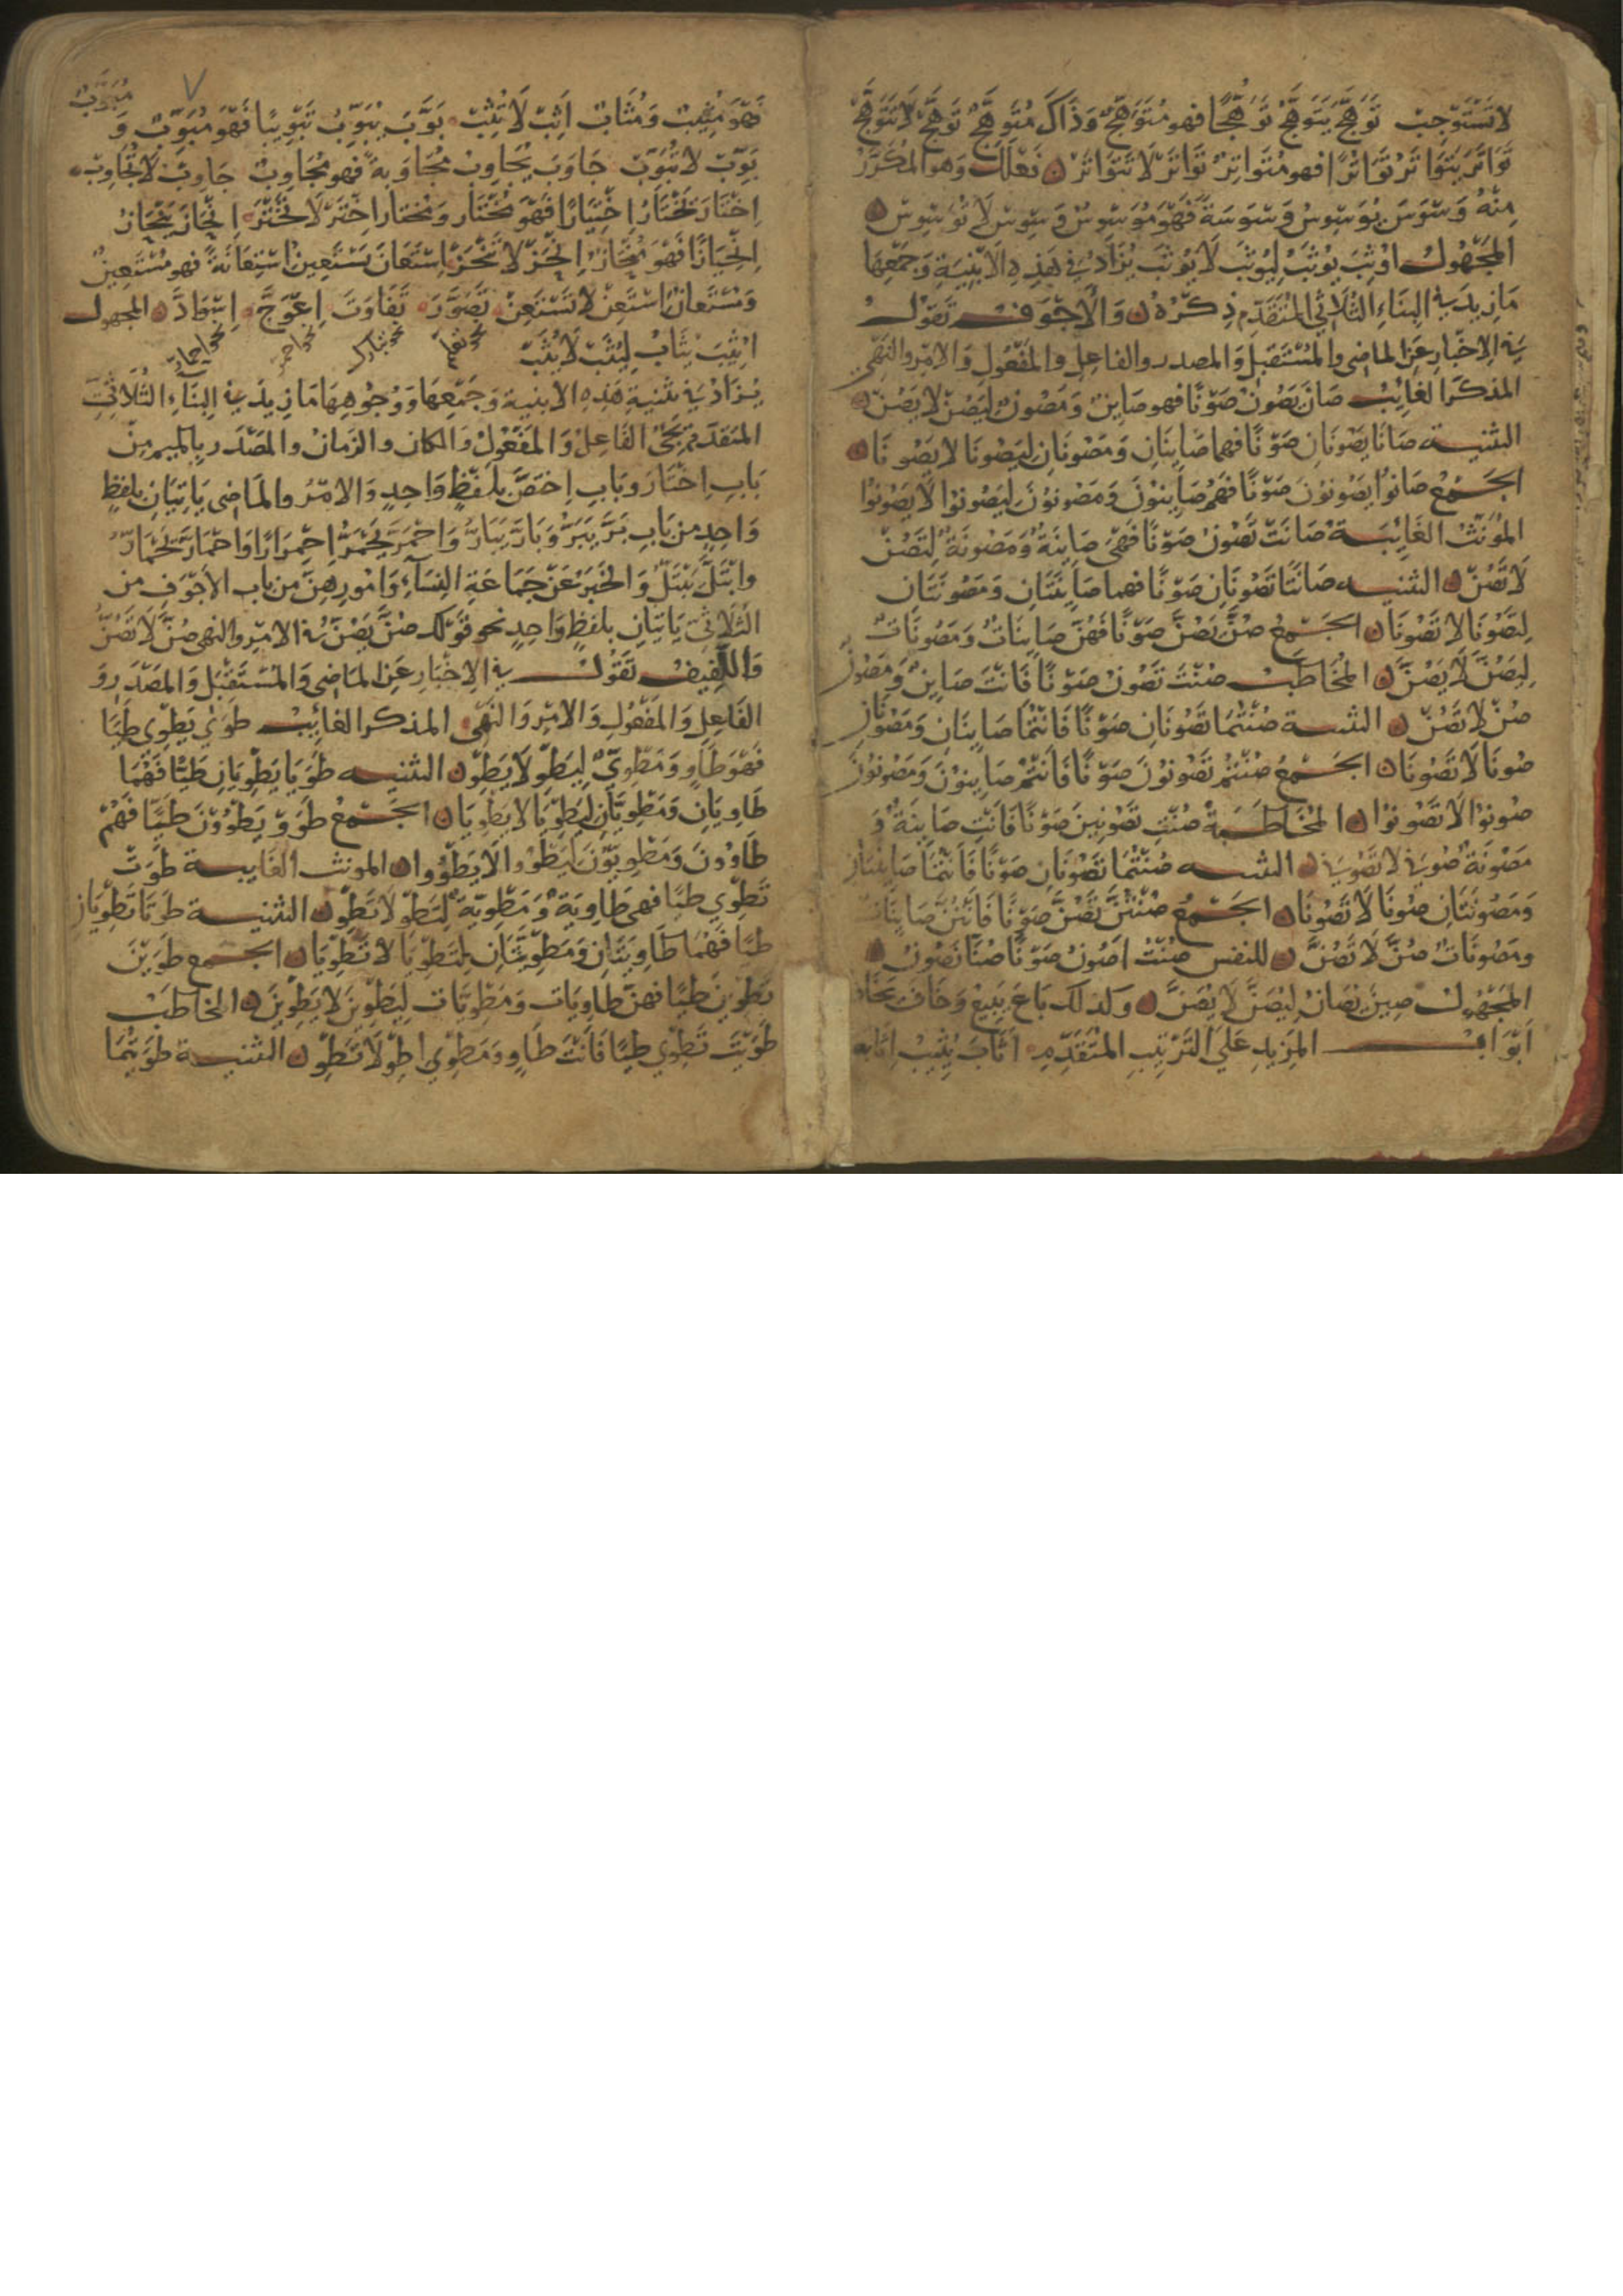 لَا تَسْتَوْجِبْ تَوَهَّجَ يَتَوَهَّجُ تَوَهُّجًا فهو مُتَوَهِّجٌ وَذَاكَ مُتَوَهَّجٌ تَوَهَّجْ لَا تَتَوَهَّجْ
تَوَاتَرَ يَتَوَاتَرُ تَوَاتُرًا فهو مُتَوَاتِرٌ تَوَاتَرْ لَا تَتَوَاتَرْ ۞ فَعْلَلَ وَهو المُكَرَّرُ
مِنْهُ وَسْوَسَ يُوَسْوِسُ وَسْوَسَةً فَهُوَ مُوَسْوِسٌ وَسْوِسْ لَا تُوَسْوِسْ ۞
المَجْهُولُ اوُثِبَ يُوثَبُ لِيُوثَبْ لَا يُوثَبْ يُزَادُ فِي هَذِهِ الأَبْنِيَةِ وَجَمْعِهَا
مَا زِيدَ فِي البِنَاءِ الثُّلَاثِي المُتَقَدِّمِ ذِكْرُهُ ۞ وَالأَجْوَفُ تَقُولُ
فِي الإِخْبَارِ عَنِ الماضِي والمُسْتَقْبَلِ وَالمصدر والفاعِلِ والمَفْعُولِ وَالأمْرِ والنَّهْيِ
المذكر الغائِبُ صَانَ يَصُونُ صَوْنًا فهو صَايِنٌ وَمَصُونٌ لِيَصُنْ لَا يَصُنْ ۞
التثنيـــة صَانَا يَصُونَانِ صَوْنًا فهما صَايِنَانِ وَمَصُونَانِ لِيَصُونَا لا يَصُونَا ۞
الجَمْعُ صَانُوا يَصُونُونَ صَوْنًا فَهُمْ صَايِنُونَ وَمَصُونُونَ لِيَصُونُوا لَا يَصُونُوا
المُؤنَثُ الغَائِبَــةُ صَانَتْ تَصُونُ صَوْنًا فَهْيَ صَايِنَةٌ وَمَصُونَةٌ لِتَصُنْ
لَا تَصُنْ ۞ التثنيه صَانَتَا تَصُونَانِ صَوْنًا فهما صَايِنَتَانِ وَمَصُونَتَانِ
لِتَصُونَا لَا تَصُونَا ۞ الجَمْعُ صُنَّ يَصُنَّ صَوْنًا فَهُنَّ صَايِنَاتٌ وَمَصُونَاتٌ
لِيَصُنَّ لَا يَصُنَّ ۞ المُخَاطَبُ صُنْتَ تَصُونُ صَوْنًا فَانْتَ صَايِنٌ وَمَصُونٌ
صُنْ لَا تَصُنْ ۞ التثنيـة صُنْتُمَا تَصُونَانِ صَوْنًا فَانْتُمَا صَايِنَانِ وَمَصُونَانِ
صُونَا لَا تَصُونَا ۞ الجَمْعُ صُنْتُمْ تَصُونُونَ صَوْنًا فَانْتُمْ صَايِنُونَ وَمَصُونُونَ
صُونُوا لَا تَصُونُوا ۞ المُخَاطَبَــةُ صُنْتِ تَصُونِينَ صَوْنًا فَانْتِ صَايِنَةٌ وَ
مَصُونَةٌ صُونِي لَا تَصُونِي ۞ التثنيـه صُنْتُمَا تَصُونَانِ صَوْنًا فَانْتُمَا صَايِنَتَانِ
وَمَصُونَتَانِ صُونَا لَا تَصُونَا ۞ الجَمْعُ صُنْتُنَّ تَصُنَّ صَوْنًا فَانْتُنَّ صَايِنَاتٌ
ومَصُونَاتٌ صُنَّ لَا تَصُنَّ ۞ للنفس صُنْتُ اَصُونُ صَوْنًا صُنَّا نَصُونُ ۞
المَجْهُولُ صِينَ يُصَانُ لِيُصَنْ لَا يُصَنْ ۞ وَلذلك بَاعَ يَبِيعُ وَخَافَ يَخَافُ
اَبْوَابُ المَزِيدِ عَلَى التَّرْتِيبِ المُتَقَدِّمِ اَثَابَ يُثِيبُ اِثَابه
٧
مُبَوَّبٌ
فَهُوَ مُثِيبٌ وَمُثَابٌ اَثِبْ لَا تُثِبْ بَوَّبَ يُبَوِّبُ تَبْوِيبًا فَهُوَ مُبَوِّبٌ وَ
بَوِّبْ لَا تُبَوِّبْ جَاوَبَ يُجَاوِبُ مُجَاوَبَةً فهو مُجَاوِبٌ جَاوِبْ لَا تُجَاوِبْ
اِخْتَارَ يَخْتَارُ اِخْتِيَارًا فَهُوَ مُخْتَار وَمُختار اِخْتَرْ لَا تَخْتَرْ اِنْحَازَ يَنْحَازُ
اِنْحِيَازًا فَهُوَ مُنْحَازٌ اِنْحَزْ لَا تَنْحَزْ اِسْتَعَانَ يَسْتَعِينُ اسْتِعَانَةً فهو مُسْتَعِينٌ
وَمُسْتَعَانٌ اسْتَعِنْ لَا تَسْتَعِنْ تَصَوَّرَ تَفَاوَتَ اِعْوَجَّ اِسْوَادَّ ۞ المجهول
اثِيبَ يُثَابُ لِيُثَبْ لَا يُثَبْ
نحو تشارك نحو احمرّ نحو احمارّ
يُزَادُ فِي تثنية هَذِهِ الابنية وَجَمْعِهَا وَوُجُوهِهَا مَا زِيدَ فِي البِنَاءِ الثُّلَاثِيِّ
المتقدّم يَجِئُ الفَاعِلُ وَالمَفْعُولُ وَالمكان والزمانُ والمَصْدَر بالميم مِنْ
بَابِ اِخْتَارَ وبَابِ اِخْتَصَّ بلَفْظٍ وَاحِدٍ وَالامْرُ والمَاضِي يَاتِيَانِ بلفظٍ
وَاحِدٍ من بَابِ بَرَّ يَبَرُّ وَبَارَّ يُبَارُّ وَاحْمَرَّ يَحْمَرُّ احْمِرَارًا وَاحْمَارَّ يَحْمَارُّ
وابْتَلَّ يَبْتَلُّ وَالخَبَرُ عَنْ جَمَاعَةِ النِّسَآءِ وَامُورِهِنَّ مِن باب الاَجْوَفِ من
الثُّلَاثِيِّ يَاتِيَانِ بلفظٍ وَاحِدٍ نحو قَوْلك صُنَّ يَصُنَّ فِي الامْرِ والنهي صُنَّ لَا تَصُنَّ
وَاللَّفِيفُ تَقُولُ فِي الاِخْبَارِ عَنِ المَاضِي وَالمُسْتَقْبَلِ وَالمَصْدَرِ وَ
الفَاعِلِ وَالمَفْعُولِ وَالامْرِ وَالنَّهْيِ المذكر الغائِبُ طَوَى يَطْوِي طَيًّا
فَهُوَ طَاوٍ وَمَطْوِيٌّ لِيَطْوِ لَا يَطْوِ ۞ التثنيـه طَوَيَا يَطْوِيَانِ طَيًّا فَهُمَا
طَاوِيَانِ وَمَطْوِيَّانِ لِيَطْوِيَا لَا يَطْوِيَا ۞ الجَمْعُ طَوَوْا يَطْوُونَ طَيًّا فَهُمْ
طَاوُونَ وَمَطْوِيُّونَ لِيَطْوُوا لَا يَطْوُوا ۞ المونث الغَايبــة طَوَتْ
تَطْوِي طَيًّا فهي طَاوِيَةٌ وَمَطْوِيَّةٌ لِتَطْوِ لَا تَطْوِ ۞ التثنيــة طَوَتَا تَطْوِيَانِ
طَيًّا فَهُمَا طَاوِيَتَانِ وَمَطْوِيَّتَانِ لِتَطْوِيَا لَا تَطْوِيَا ۞ الجمع طَوَيْنَ
يَطْوِينَ طَيًّا فهنّ طَاوِيَات وَمَطْوِيَّات لِيَطْوِينَ لَا يَطْوِينَ ۞ المخاطَبُ
طَوَيْتَ تَطْوِي طَيًّا فَانْتَ طَاوٍ وَمَطْوِيّ اطْوِ لَا تَطْوِ ۞ التثنيــة طَوَيْتُمَا